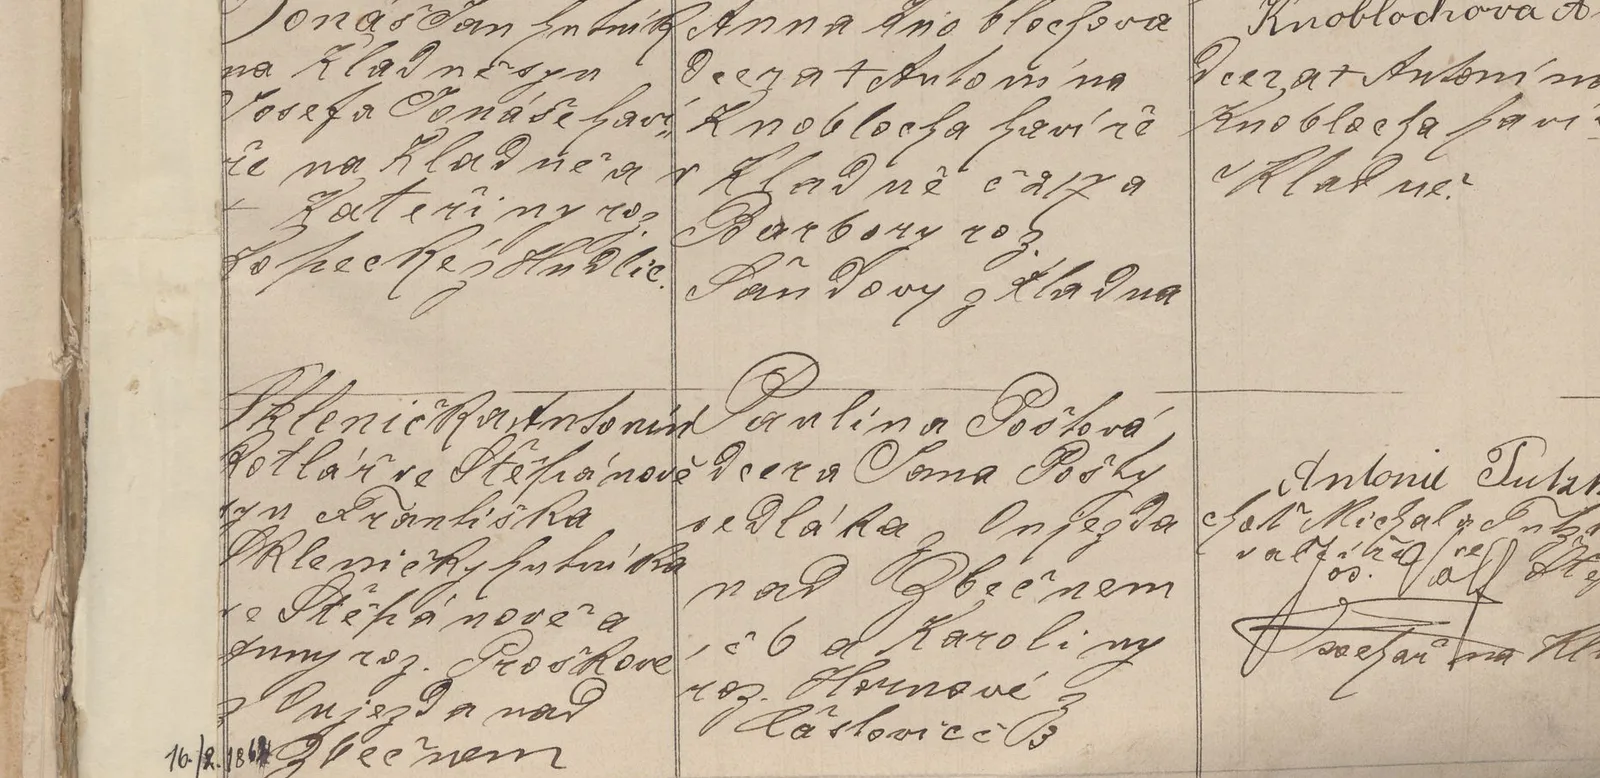 Jonáš Jan hutník
na Kladně syn
Josefa Jonáše haví
ře na Kladně a
+ Kateřiny roz.
Kopecké z Hudlic.
Anna Knoblochova
dcera + Antonína
Knoblocha havíře
v Kladně č 217 a
Barbory roz.
Šándovy z Kladna
Knoblochova A
dcera + Antonína
Knoblocha haví
v Kladně.
Sklenička Antonín
Kotlář ve Štěpánově
syn Františka
Skleničky hutníka
ve Štěpánově a
Anny roz. Proškove
z Oujezda nad
Zbečnem
16./2. 186
Paulina Poštová
dcera Jana Pošty
sedláka z Oujezda
nad Zbečnem
č 6 a Karoliny
roz. Hornové z
Částovic č 3
Antonie
choť Michala
ve
Jos.
na Kl